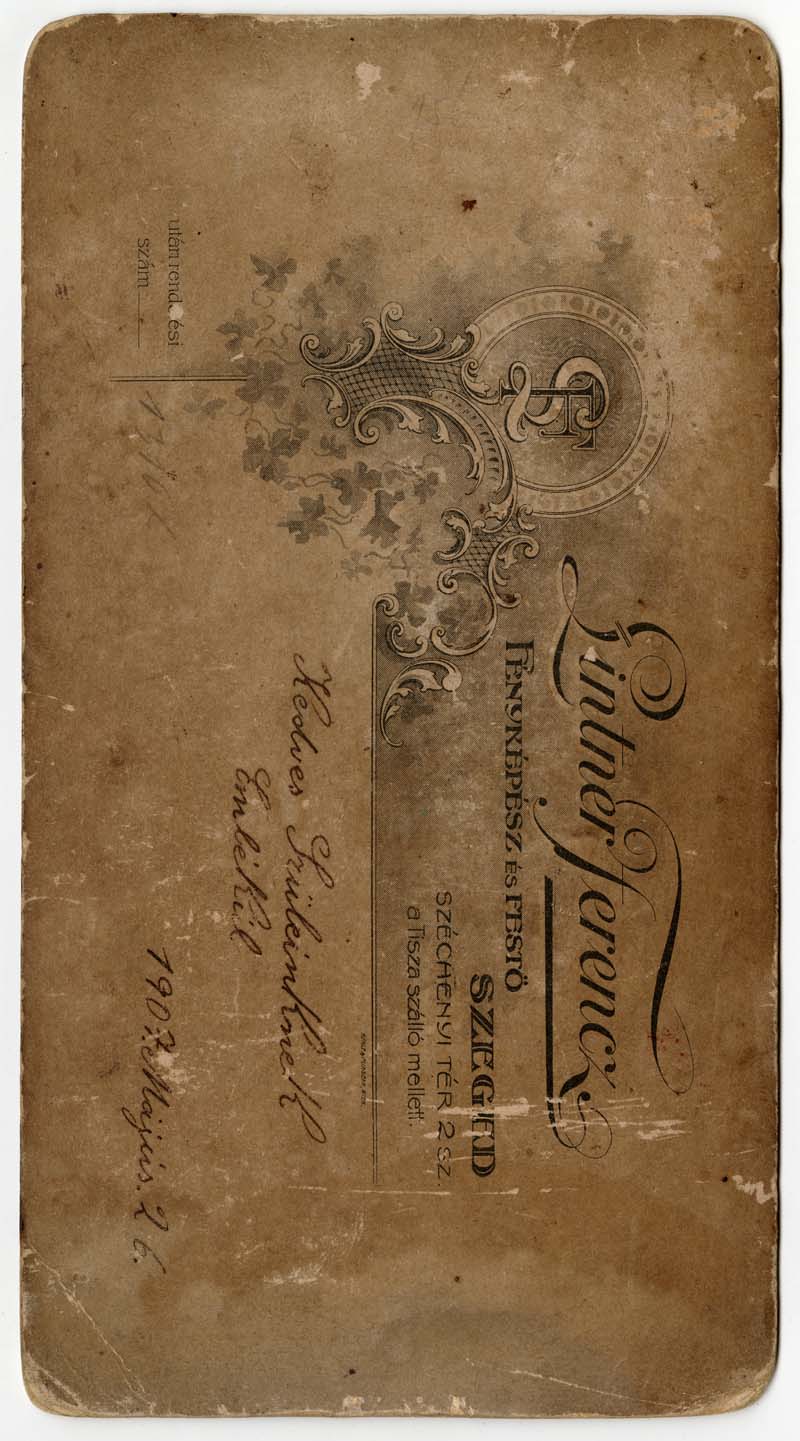 Lintner Ferencz
FÉNYKÉPÉSZ ÉS FESTŐ
SZEGED
SZÉCHENYI TÉR 2 SZ.
a Tisza szálló mellett.
Kedves Szüleinknek
Emlékül
1907 Május. 26.
után rendelési
szám